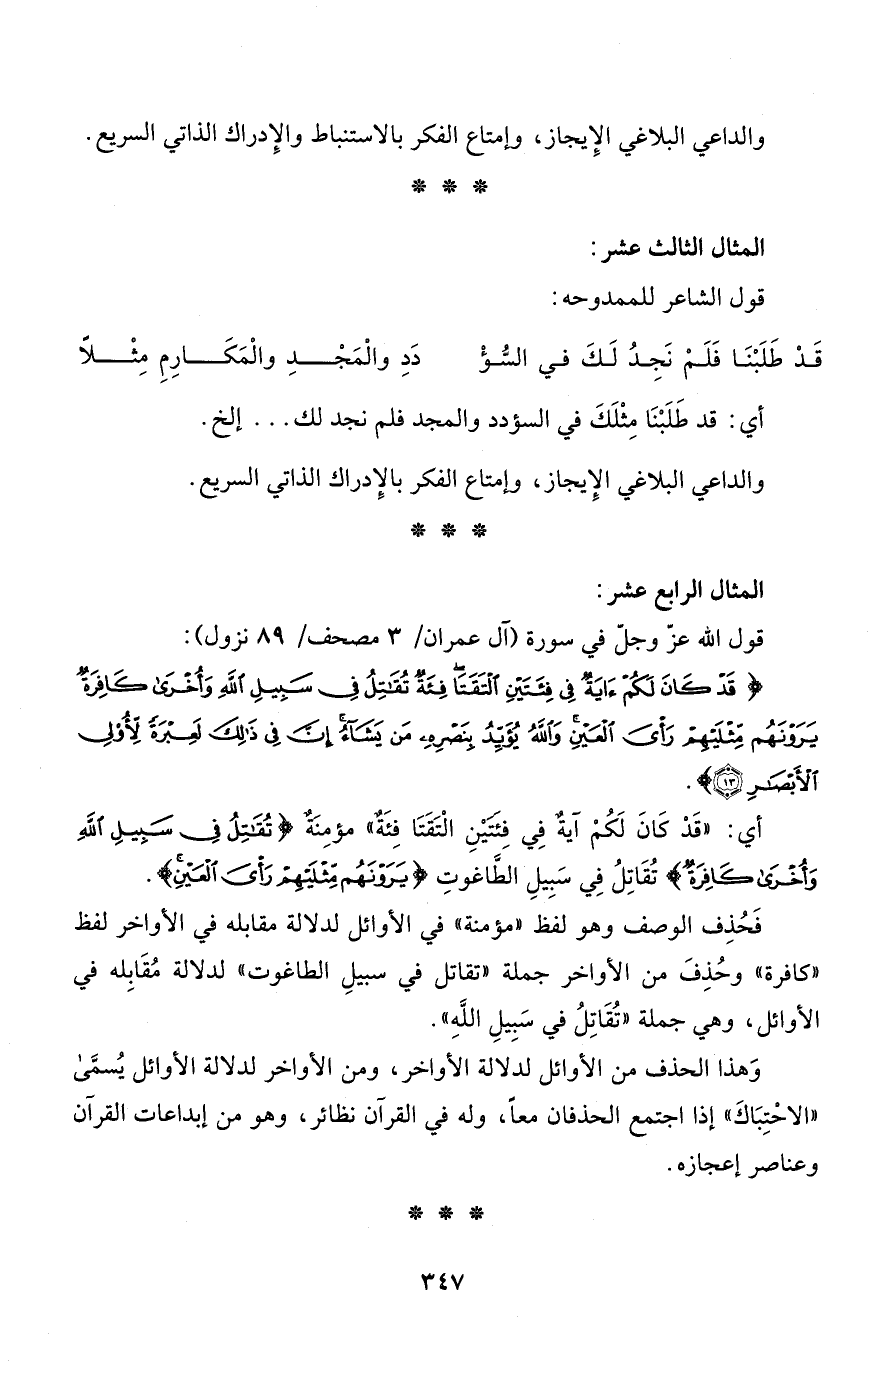 والداعي البلاغي الإِيجاز، وإمتاع الفكر بالاستنباط والإِدراك الذاتي السريع.
* * *
المثال الثالث عشر:
قول الشاعر للممدوحه:
قَدْ طَلَبْنَا فَلَمْ نَجِدُ لَكَ في السُّؤْ دَدِ والْمَجْدِ والْمَكَارِمِ مِثْلاً
أي: قد طَلَبْنَا مِثْلَكَ في السؤدد والمجد فلم نجد لك... إلخ.
والداعي البلاغي الإِيجاز، وإمتاع الفكر بالإِدراك الذاتي السريع.
* * *
المثال الرابع عشر:
قول الله عزّ وجلّ في سورة (آل عمران/ ٣ مصحف/ ٨٩ نزول):
﴿قَدْ كَانَ لَكُمْ ءَايَةٌ فِي فِئَتَيْنِ ٱلْتَقَتَا ۖ فِئَةٌ تُقَٰتِلُ فِي سَبِيلِ ٱللَّهِ وَأُخْرَىٰ كَافِرَةٌ
يَرَوْنَهُم مِّثْلَيْهِمْ رَأْىَ ٱلْعَيْنِ ۚ وَٱللَّهُ يُؤَيِّدُ بِنَصْرِهِۦ مَن يَشَآءُ ۗ إِنَّ فِي ذَٰلِكَ لَعِبْرَةً لِّأُوْلِي
ٱلْأَبْصَٰرِ ١٣﴾.
أي: «قَدْ كَانَ لَكُمْ آيةٌ فِي فِئَتَيْنِ الْتَقَتَا فِئَةٌ» مؤمِنَةٌ ﴿تُقَٰتِلُ فِي سَبِيلِ ٱللَّهِ
وَأُخْرَىٰ كَافِرَةٌ﴾ تُقَاتِلُ فِي سَبِيلِ الطَّاغوتِ ﴿يَرَوْنَهُم مِّثْلَيْهِمْ رَأْىَ ٱلْعَيْنِ ۚ﴾.
فَحُذِف الوصف وهو لفظ «مؤمنة» في الأوائل لدلالة مقابله في الأواخر لفظ
«كافرة» وحُذِفَ من الأواخر جملة «تقاتل في سبيلِ الطاغوت» لدلالة مُقَابِله في
الأوائل، وهي جملة «تُقَاتِلُ في سَبِيلِ اللَّهِ».
وَهذا الحذف من الأوائل لدلالة الأواخر، ومن الأواخر لدلالة الأوائل يُسمَّىٰ
«الاحْتِبَاكَ» إذا اجتمع الحذفان معاً، وله في القرآن نظائر، وهو من إبداعات القرآن
وعناصر إعجازه.
* * *
٣٤٧